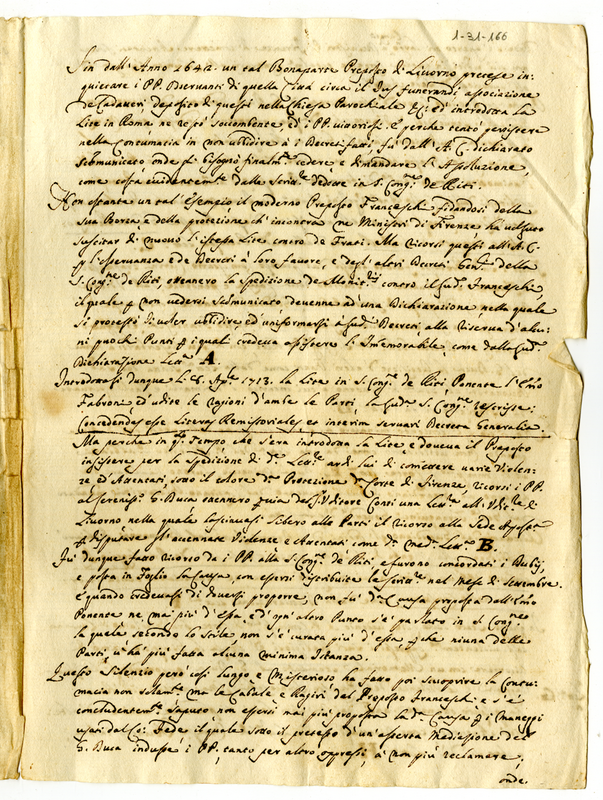 1-31-166
Sin dall'Anno 1642. un tal Bonaparte Preposto di Livorno pretese in-
quietare i PP. Osservanti di quella Città circa il Jus funerandi, associazione
de Cadaveri, deposito di questi nella Chiesa Parochiale &c: ed introdotta la
Lite in Roma ne restò soccombente, ed i PP. vittoriosi. E perche tentò persistere
nella Contumacia in non ubbidire à i Decreti fatti, fù dall'A. C. dichiarato
Scomunicato onde gli bisognò finalm.te cedere e dimandare l'Assoluzione,
come costa evidentem.te dalle Scritt.e dedotte in S. Cong.ne de Riti.
Non ostante un tal'Esempio il moderno Preposto Franceschi fidandosi della
sua Borza e della protezione ch'incontra ne Ministri di Firenze ha voluto
suscitar di nuovo l'istessa Lite contro de Frati. Ma ricorsi questi all'A. C.
p l'osservanza de Decreti à loro favore, e degl'altri Decreti Gen.li della
S. Cong.ne de Riti, ottennero la spedizione de Monit.rij contro il sud.o Franceschi,
il quale p non vedersi Scomunicato devenne ad una Dichiarazione nella quale
si protestò di voler ubbidire ed uniformarsi à sud.i Decreti, alla riserva d'alcu-
ni pochi Punti p i quali credeva assistere l'Immemorabile, come dalla sud.a
Dichiarazione Lett.a A.
Introdottasi dunque li 8. Ap.le 1713. la Lite in S. Cong.ne de Riti Ponente l'Emo
Fabroni ed udite le ragioni d'ambe le Parti, la sud.a S. Cong.ne rescrisse:
Concedendas esse Literas Remissoriales et interim servari Decreta Generalia.
Ma perche in q.to Tempo che s'era introdotta la Lite e doveva il Preposto
insistere per la spedizione di d.e Lett.e ardì lui di comettere varie Violen-
ze ed Attentati, sotto il colore d.a Protezione d.a Corte di Firenze, ricorsi i PP.
al Sereniss.o G. Duca ottennero p via del S.r Uditore Conti una Lett.a all'Udit.e di
Livorno nella quale lasciavasi libero alle Parti il ricorso alla Sede Aposto.a
p disputare gl'accennate Violenze e Attentati come d.a med.a Lett.a B.
Fu' dunque fatto ricorso da i PP. alla S. Cong.ne de Riti, e furono concordati i Dubij,
e posta in Foglio la Causa, con essersi distribuite le Scritt.e nel Mese di Settembre.
E quando credevasi di doversi proporre, non fu' d.a Causa proposta dall'Emo
Ponente ne mai più d'essa, e d'ogn'altro Punto s'è parlato in S. Cong.ne
la quale secondo lo Stile, non s'è curata più d'essa, p che niuna delle
Parti, v'hà più fatta alcuna minima Istanza.
Questo Silenzio però così lungo e Misterioso ha fatto poi scuoprire la Contu-
macia non solam.te ma le Cabale e Ragiri del Preposto Franceschi e s'è
concludentem.te saputo non essersi mai più proposta la d.a Causa p i Maneggi
usati dal Co: Fede il quale sotto il pretesto d'un'asserta Mediazione del
G. Duca indusse i PP., tanto per altro oppressi, à non più reclamare;
onde.